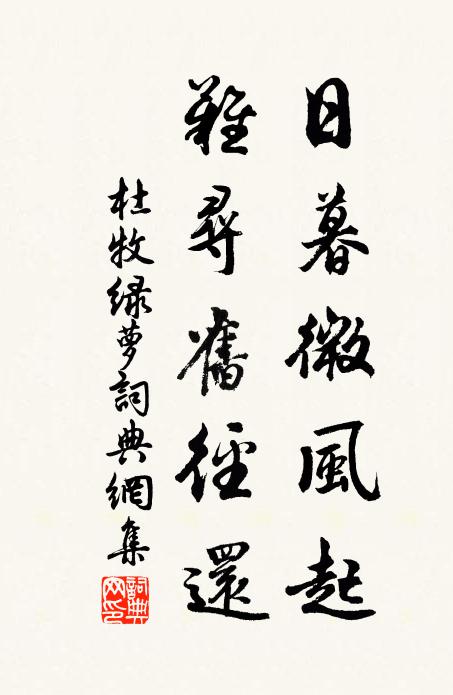 日暮微風起
難尋舊徑還
杜牧緑夢詞典網集
詞典
网印